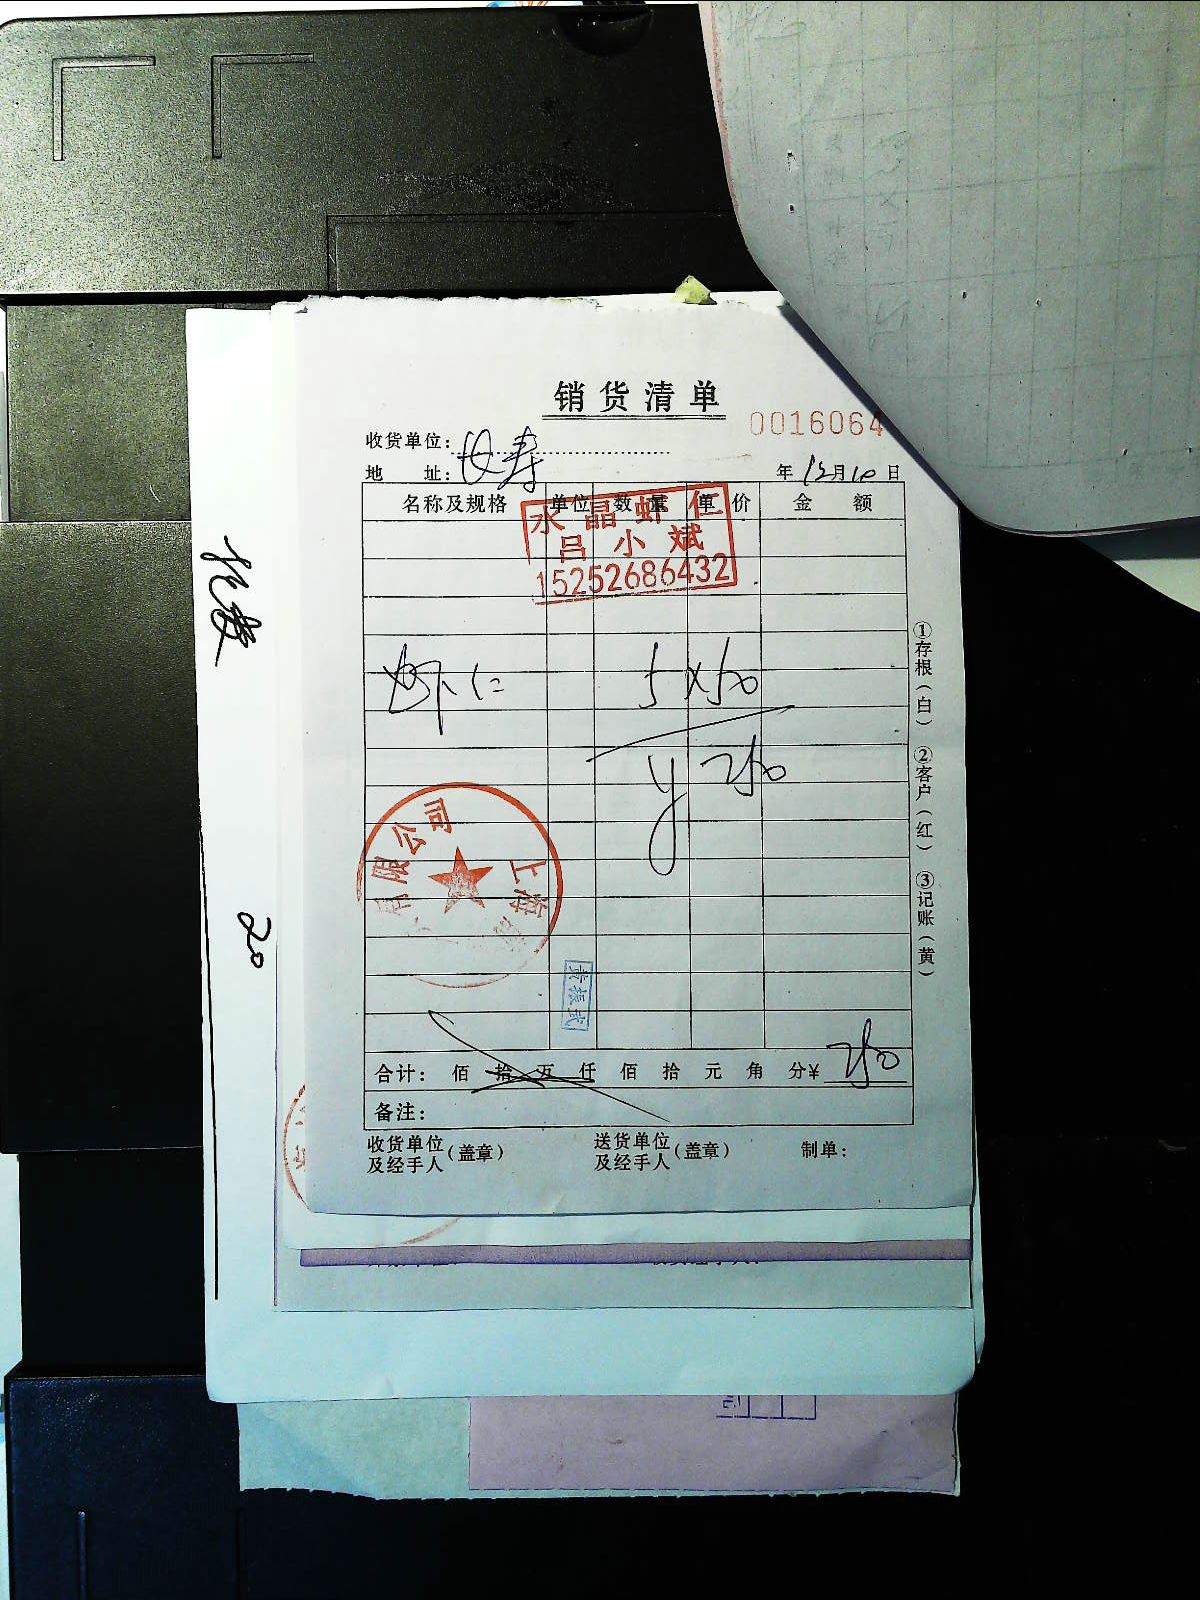 销货清单
0016064
收货单位：
地 址：
年12月10日
名称及规格 单位 数量 单价 金额
水晶虾仁
吕小斌
15252686432
虾仁 5×50
¥250
有限公司
上
黄振武
合计： 佰 拾 万 仟 佰 拾 元 角 分¥ 250
备注：
收货单位及经手人（盖章） 送货单位及经手人（盖章） 制单：
①存根（白） ②客户（红） ③记账（黄）
20